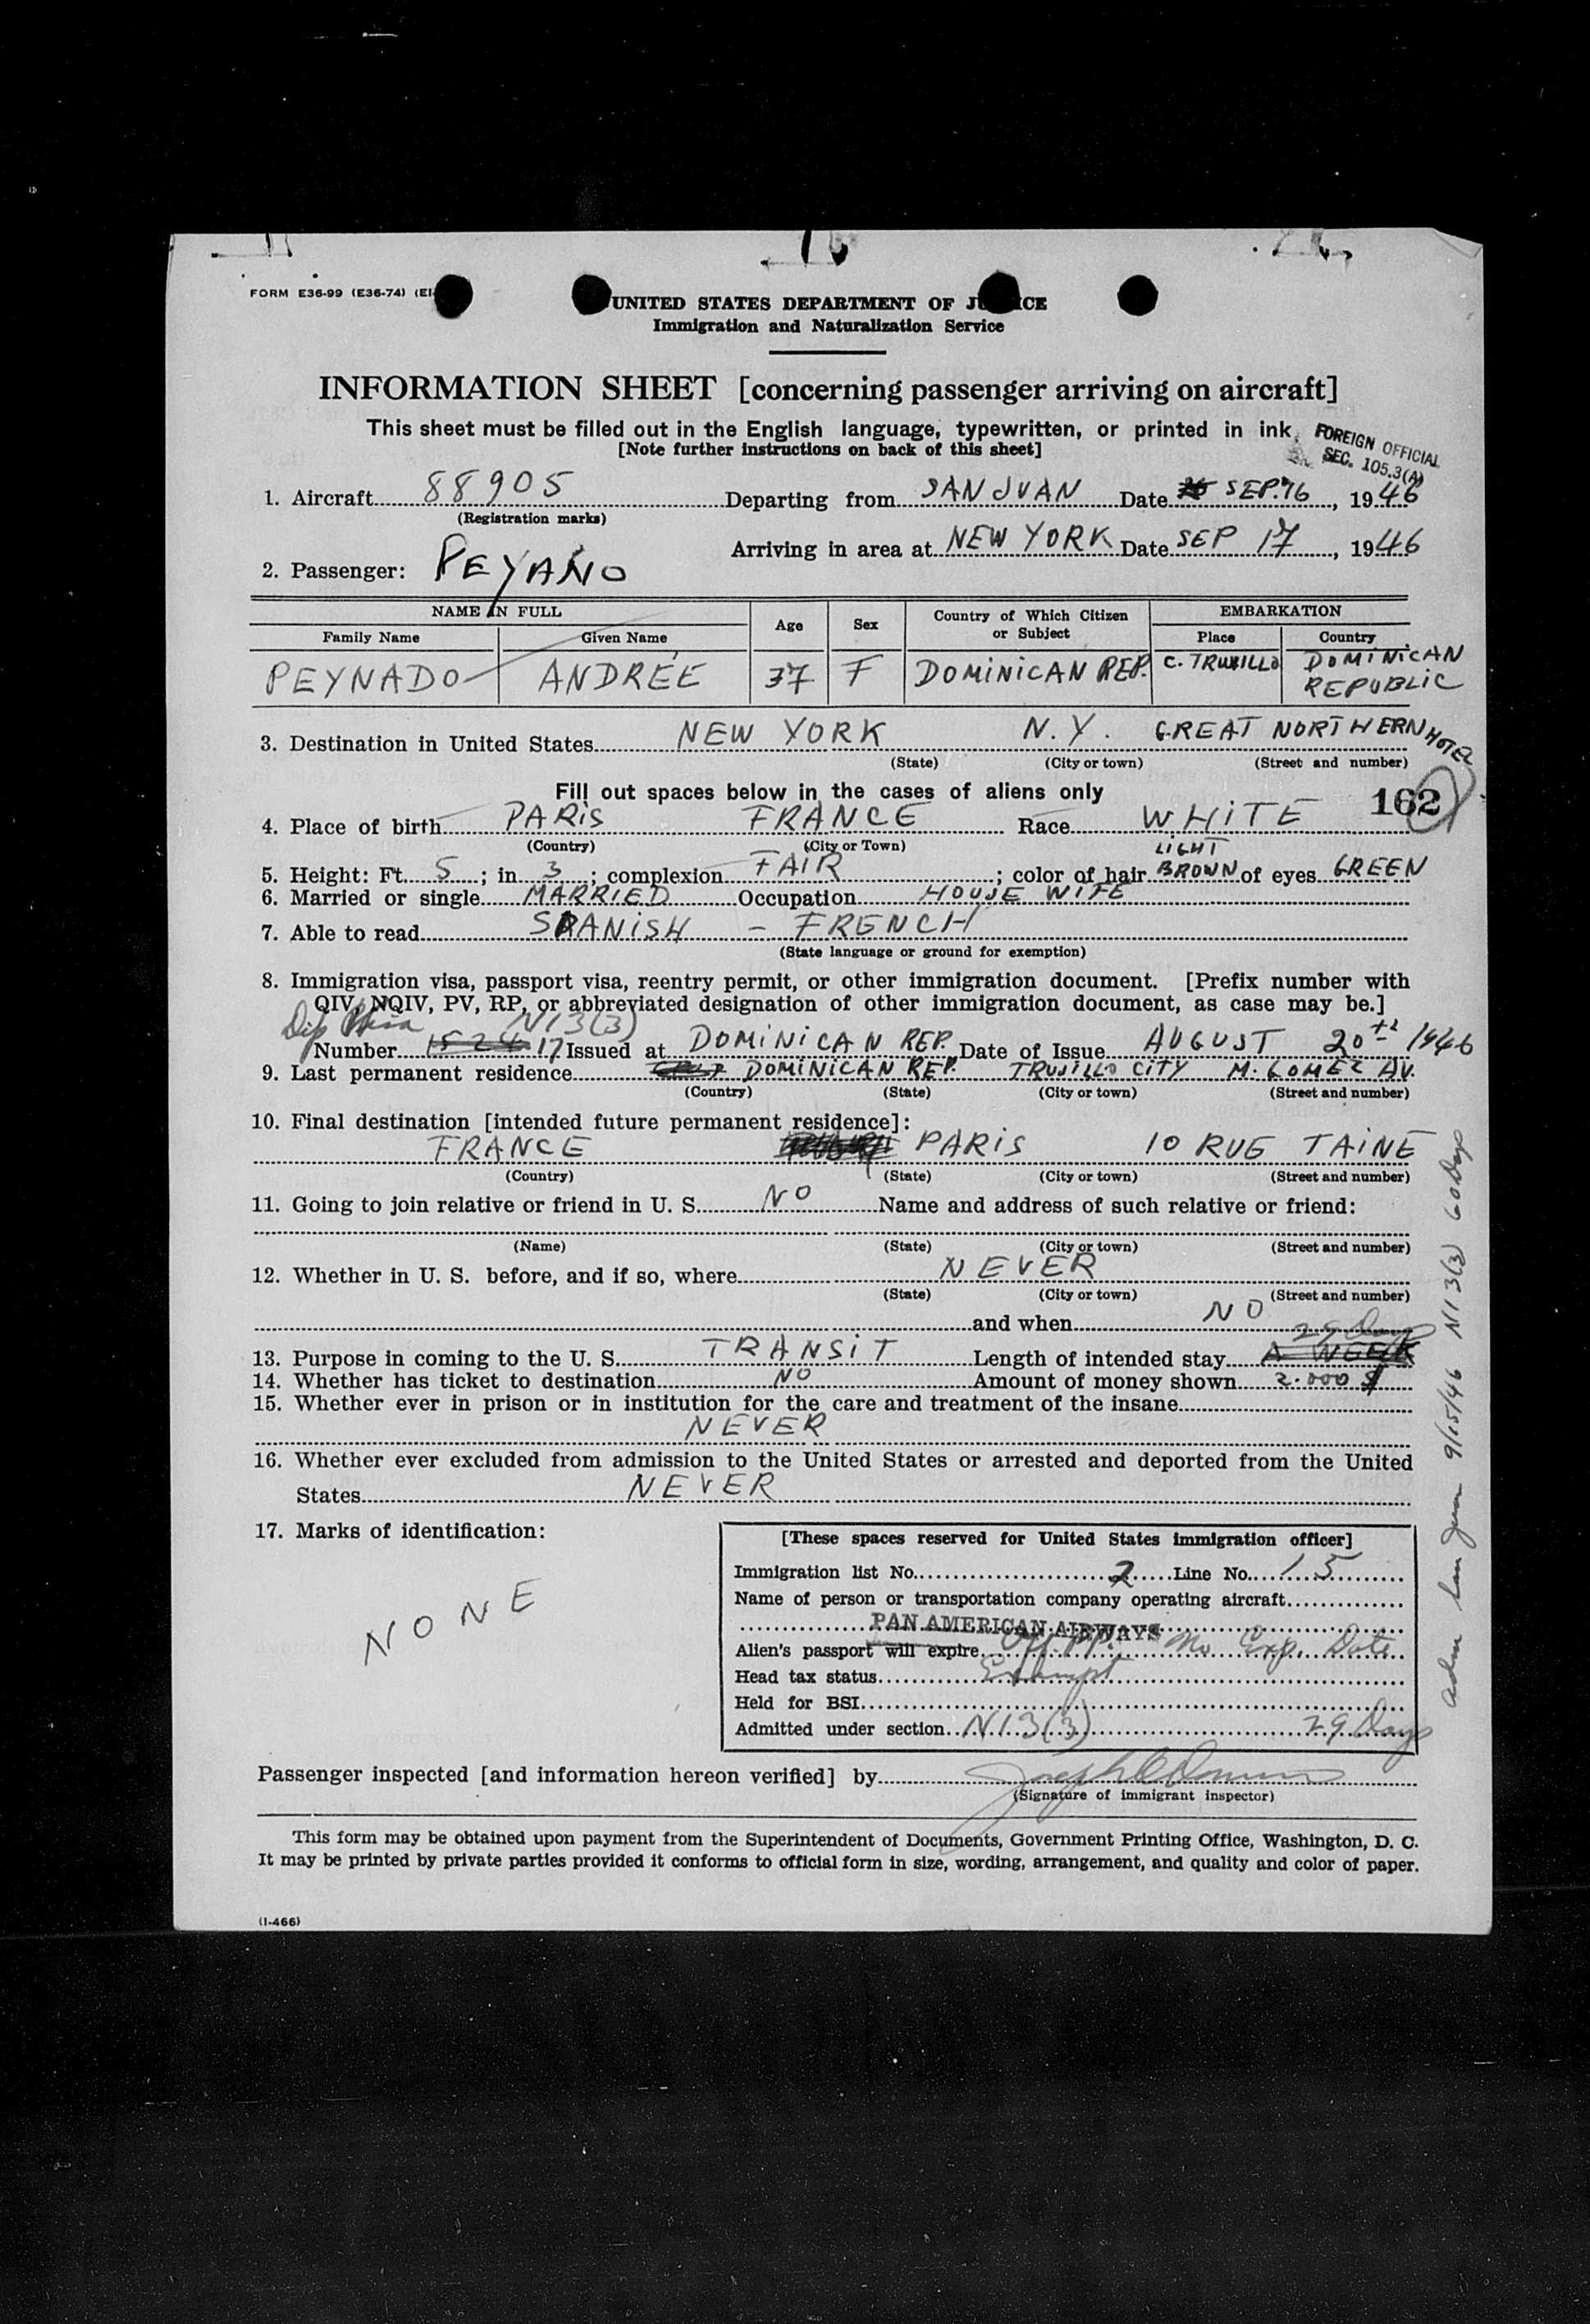 FORM E36-99 (E36-74) (EI-
UNITED STATES DEPARTMENT OF J CE
Immigration and Naturalization Service
INFORMATION SHEET [concerning passenger arriving on aircraft]
This sheet must be filled out in the English language, typewritten, or printed in ink.
[Note further instructions on back of this sheet]
FOREIGN OFFICIAL
SEC. 105.3(A)
1. Aircraft 88905 Departing from SAN JUAN Date SEP. 16, 1946
(Registration marks)
Arriving in area at NEW YORK Date SEP 17, 1946
2. Passenger: PEYANO
NAME IN FULL Age Sex Country of Which Citizen or Subject EMBARKATION
Family Name Given Name Place Country
PEYNADO ANDRÉE 37 F DOMINICAN REP. C. TRUXILLO DOMINICAN REPUBLIC
3. Destination in United States NEW YORK N.Y. GREAT NORTHERN HOTEL
(State) (City or town) (Street and number)
Fill out spaces below in the cases of aliens only
162
4. Place of birth PARIS FRANCE Race WHITE
(Country) (City or Town)
5. Height: Ft. 5; in 3; complexion FAIR; color of hair LIGHT BROWN of eyes GREEN
6. Married or single MARRIED Occupation HOUSE WIFE
7. Able to read SPANISH - FRENCH
(State language or ground for exemption)
8. Immigration visa, passport visa, reentry permit, or other immigration document. [Prefix number with
QIV, NQIV, PV, RP, or abbreviated designation of other immigration document, as case may be.]
Dip Visa N13(3)
Number 1524 17 Issued at DOMINICAN REP. Date of Issue AUGUST 20th 1946
9. Last permanent residence DOMINICAN REP. TRUJILLO CITY M. GOMEZ AV.
(Country) (State) (City or town) (Street and number)
10. Final destination [intended future permanent residence]:
FRANCE PARIS 10 RUE TAINE
(Country) (State) (City or town) (Street and number)
11. Going to join relative or friend in U. S. NO Name and address of such relative or friend:
(Name) (State) (City or town) (Street and number)
12. Whether in U. S. before, and if so, where NEVER
(State) (City or town) (Street and number)
and when NO
29 Days
13. Purpose in coming to the U. S. TRANSIT Length of intended stay A WEEK
14. Whether has ticket to destination NO Amount of money shown 2.000 $
15. Whether ever in prison or in institution for the care and treatment of the insane
NEVER
16. Whether ever excluded from admission to the United States or arrested and deported from the United
States NEVER
17. Marks of identification:
NONE
[These spaces reserved for United States immigration officer]
Immigration list No. 2 Line No. 15
Name of person or transportation company operating aircraft
PAN AMERICAN AIRWAYS
Alien's passport will expire Off. pp. No Exp. Date
Head tax status Exempt
Held for BSI
Admitted under section N13(3) 29 Days
Passenger inspected [and information hereon verified] by
(Signature of immigrant inspector)
This form may be obtained upon payment from the Superintendent of Documents, Government Printing Office, Washington, D. C.
It may be printed by private parties provided it conforms to official form in size, wording, arrangement, and quality and color of paper.
(I-466)
Adm San Juan 9/15/46 N13(3) 60 Days